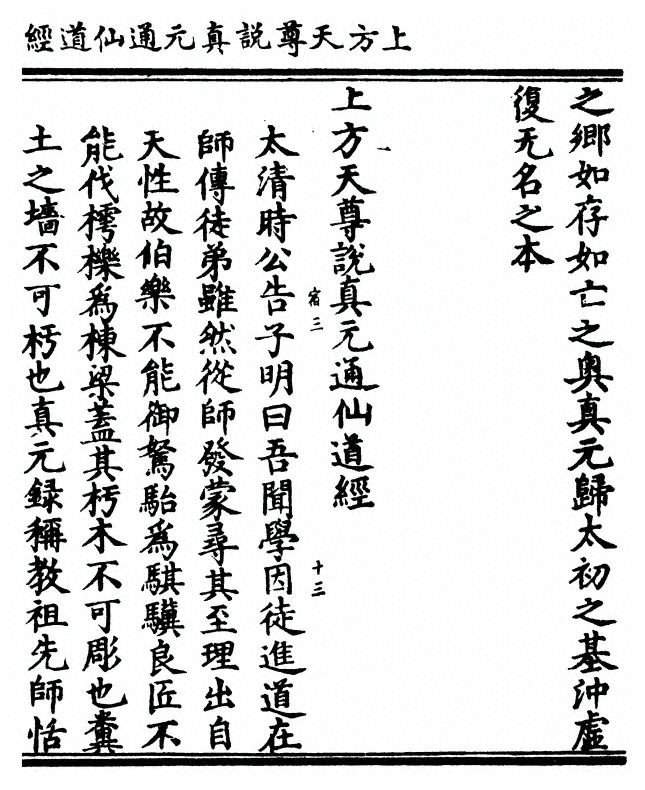 上方天尊說真元通仙道經
之鄉如存如亡之奧真元歸太初之基沖虛
復无名之本
上方天尊說真元通仙道經
宿三
十三
太清時公告子明曰吾聞學因徒進道在
師傳徒弟雖然從師發蒙尋其至理出自
天性故伯樂不能御駑駘爲騏驥良匠不
能伐樗櫟爲棟梁蓋其朽木不可彫也糞
土之墻不可杇也真元録稱教祖先師恬